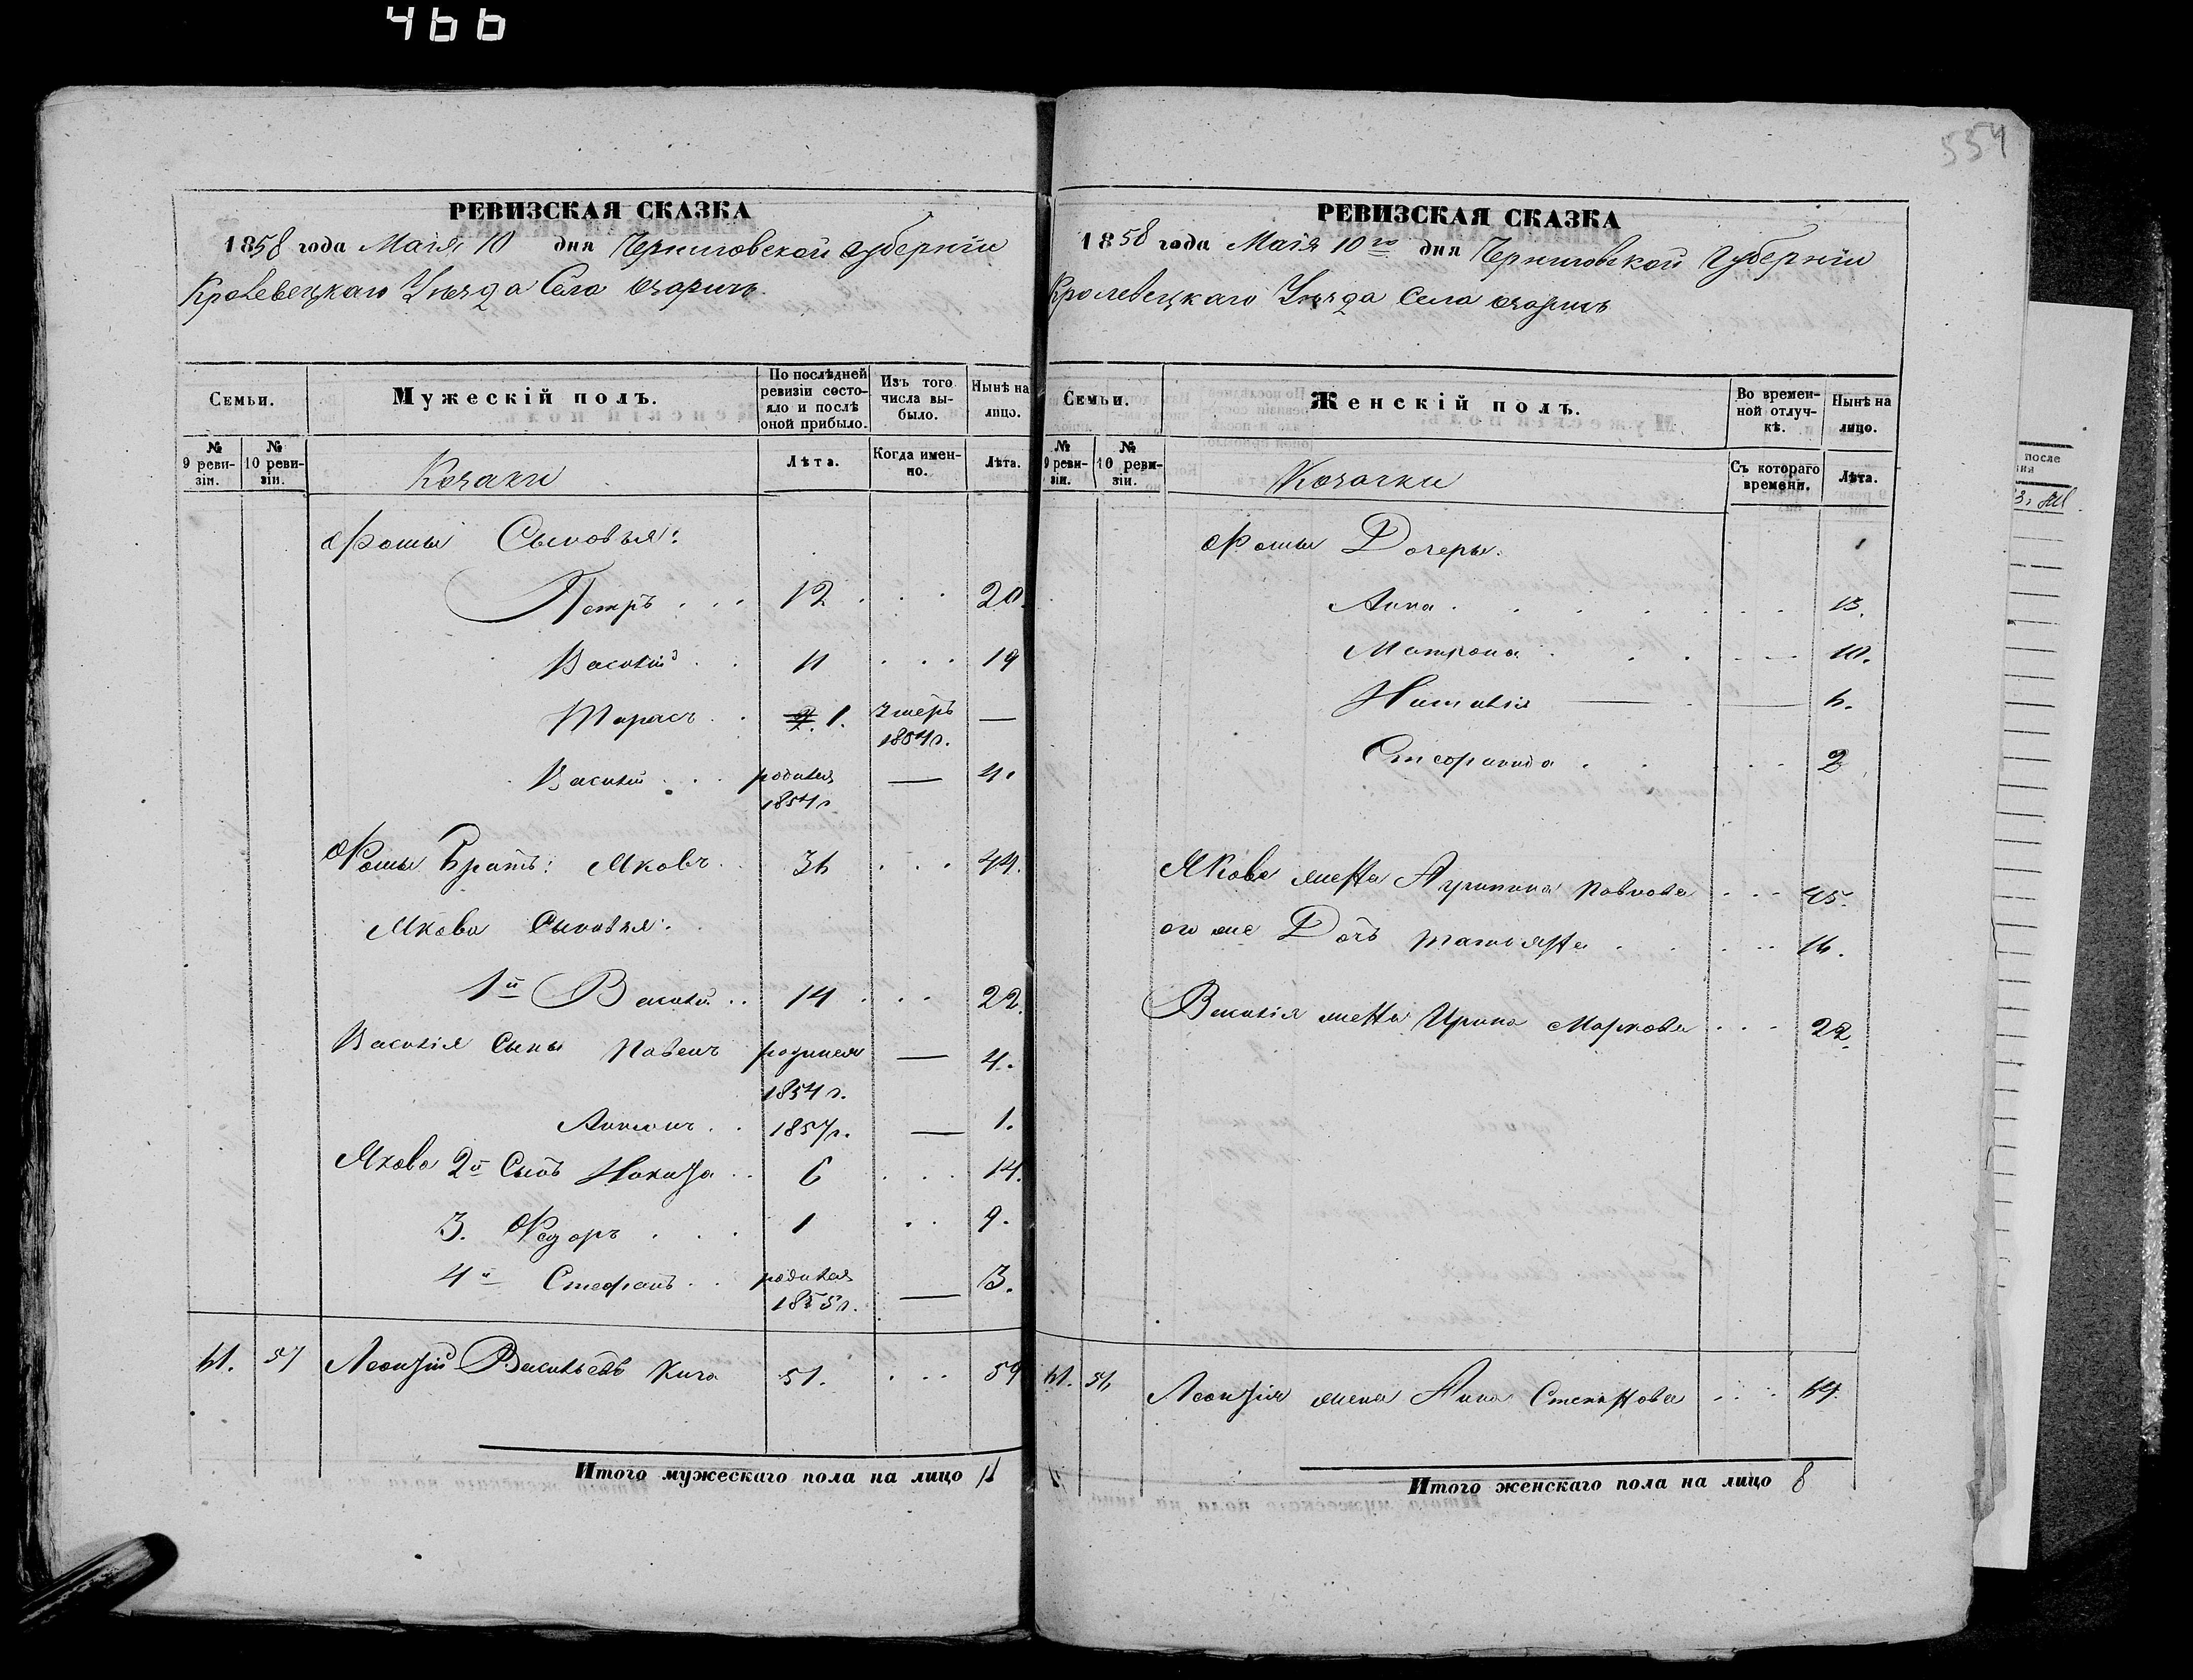 466
554
РЕВИЗСКАЯ СКАЗКА
1858 года Маія 10 дня Черниговской Губерніи
Кролевецкаго Уѣзда Села Озаричъ
Семьи.
Мужескій полъ.
По послѣдней ревизіи состояло и послѣ оной прибыло.
Изъ того числа выбыло.
Нынѣ на лицо.
№ 9 ревизіи.
№ 10 ревизіи.
Козаки
Лѣта.
Когда именно.
Лѣта.
Фомы Сыновья:
Петръ . . . 12 . . . 20.
Василій . . 11 . . . 19
Тарасъ . . 1. умеръ 1854 г. —
Василій . . . родился 1854 г. — 4.
Фомы Братъ: Яковъ . 36 . . . 44.
Якова Сыновья:
1й Василій . . 14 . . . 22.
Василія Сыны Павелъ родился 1854 г. — 4.
Антонъ . . 1857 г. — 1.
Якова 2й Сынъ Никита . . 6 . . . 14.
3. Федоръ . . . 1 . . 9.
4й Стефанъ . . родился 1855 г. — 3.
61. 57 Леонтій Васильевъ 51. . . . 59
Итого мужескаго пола на лицо 11
РЕВИЗСКАЯ СКАЗКА
1858 года Маія 10го дня Черниговской Губерніи
Кролевецкаго Уѣзда Села Озаричъ
Семьи.
Женскій полъ.
Во временной отлучкѣ.
Нынѣ на лицо.
№ 9 ревизіи.
№ 10 ревизіи.
Козачки
Съ котораго времени.
Лѣта.
Фомы Дочери:
Анна . . . 13.
Матрона . . . 10.
Наталія — 6.
Стефанида . . . 2
Якова жена Агрипина Павлова . . . 45.
его же Дочь Татьяна . . . 16.
Василія жена Ирина Маркова . . . 22.
61. 57 Леонтія жена Анна Степанова . . . 64.
Итого женскаго пола на лицо 8
после